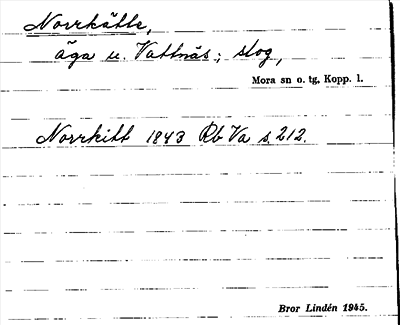 Norrkätte,
äga u. Vattnäs; slog,
Mora sn o. tg, Kopp. l.
Norrkitt 1843 Rb Va s. 212.
Bror Lindén 1945.